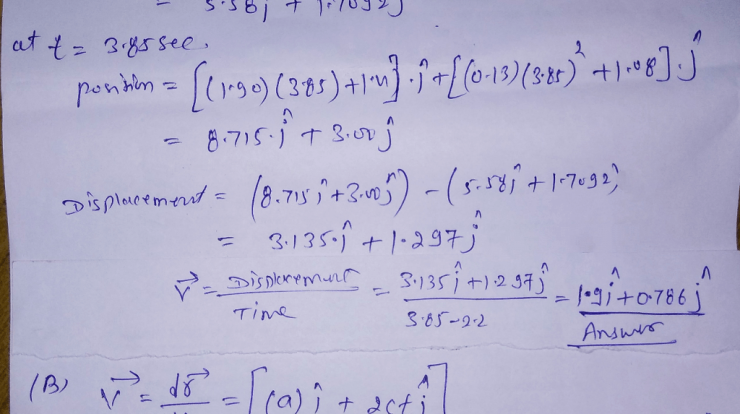 = 5.58î + 1.7092ĵ
at t = 3.85 sec.
position = [(1.90)(3.85)+1.4].î + [(0.13)(3.85)² + 1.08].ĵ
= 8.715.î + 3.00ĵ
Displacement = (8.715î + 3.00ĵ) - (5.58î + 1.7092)
= 3.135.î + 1.297ĵ
v⃗ = Displacement / Time = 3.135î + 1.297ĵ / 3.85-2.2 = 1.9î + 0.786ĵ
Answer
(B) v⃗ = dr⃗ = [(a)î + 2ctĵ]